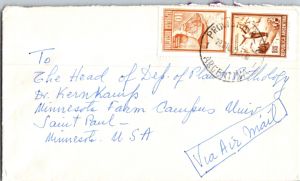 ARGENTINA
To
The Head of Dep. of Plant Pathology
Dr. Kernkamp
Minnesota Farm Campus Univ.
Saint Paul -
Minnesota. U.S.A
Via Air Mail